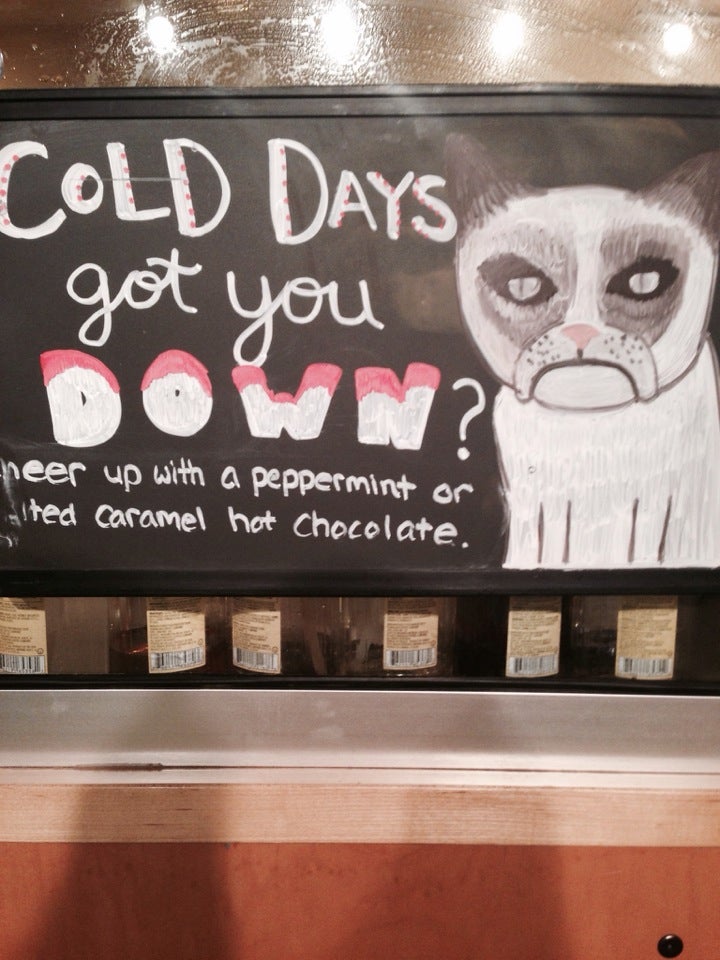 COLD DAYS
got you
DOWN?
heer up with a peppermint or
lted caramel hot chocolate.